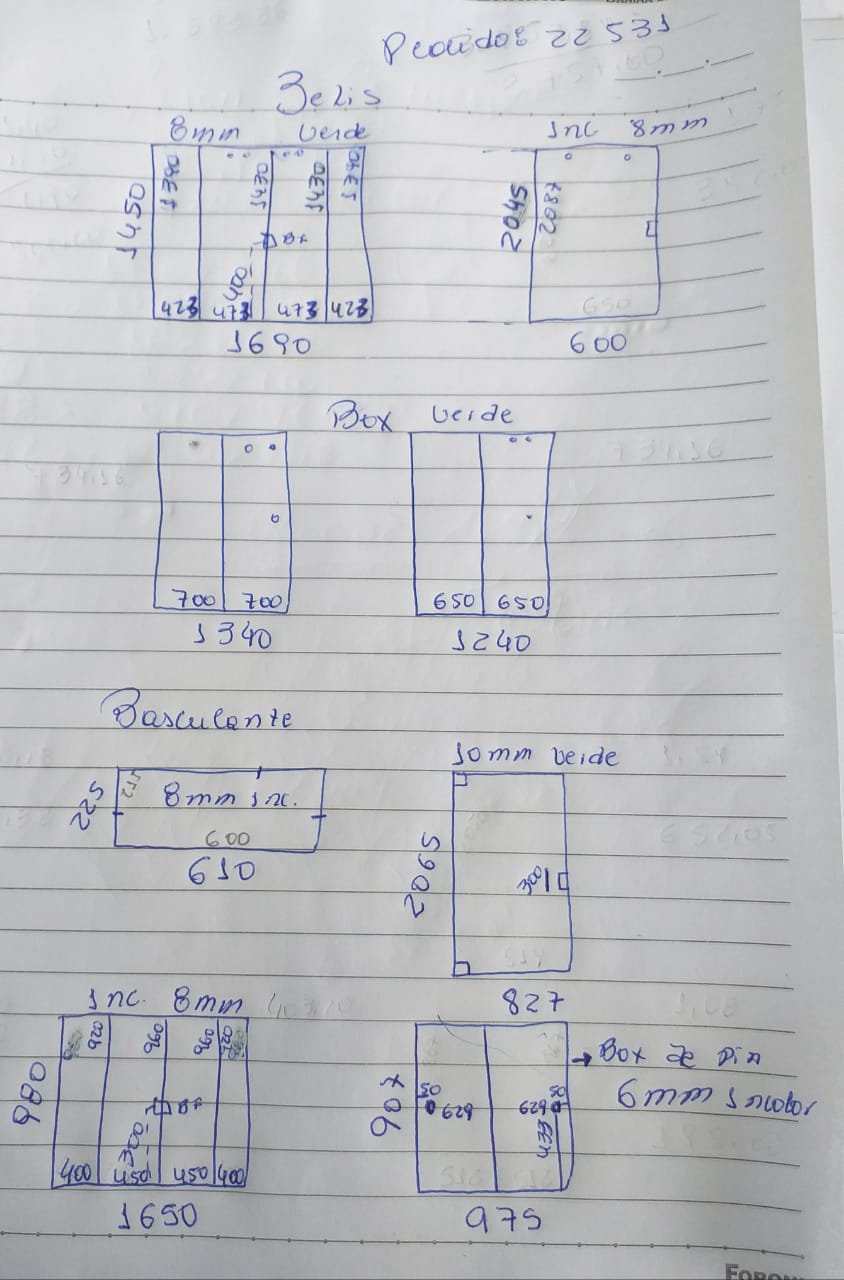 Pedido: 22531
Zelis
8mm verde
1450
1390 1430 1430 1390
Bt
400
423 473 473 423
1690
Inc 8mm
2045
2087
650
600
Box verde
700 700
1340
650 650
1240
Basculante
225
8mm Inc.
600
610
10mm verde
2065
300
827
Inc. 8mm
980
920 960 960 920
Bt
300
400 450 450 400
1650
907
50 50
629 629
439
975
Box de pia
6mm Incolor